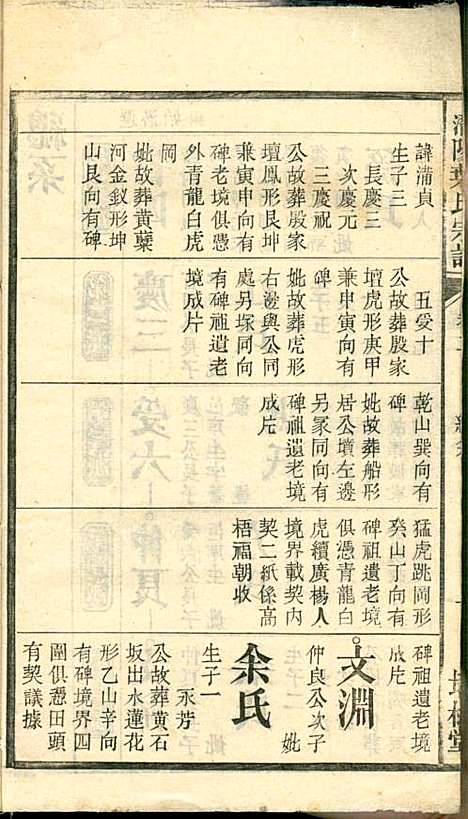 諱滿貞
生子三
長慶三
次慶元
三慶祝
公故葬殷家
壇鳳形艮坤
兼寅申向有
碑老境俱憑
外青龍白虎
岡
妣故葬黃蘗
河金釵形坤
山艮向有碑
五受十
公故葬殷家
壇虎形庚甲
兼申寅向有
碑
妣故葬虎形
右邊與公同
處另塚同向
有碑祖遺老
境成片
乾山巽向有
碑
妣故葬船形
居公墳左邊
另冢同向有
碑祖遺老境
成片
猛虎跳岡形
癸山丁向有
碑祖遺老境
俱憑青龍白
虎續廣楊人
境界載契內
契二紙係高
梧福朝收
碑祖遺老境
成片
文淵
仲良公次子
妣
余氏
生子一
永芳
公故葬黃石
坂出水蓮花
形乙山辛向
有碑境界四
圍俱憑田頭
有契議據